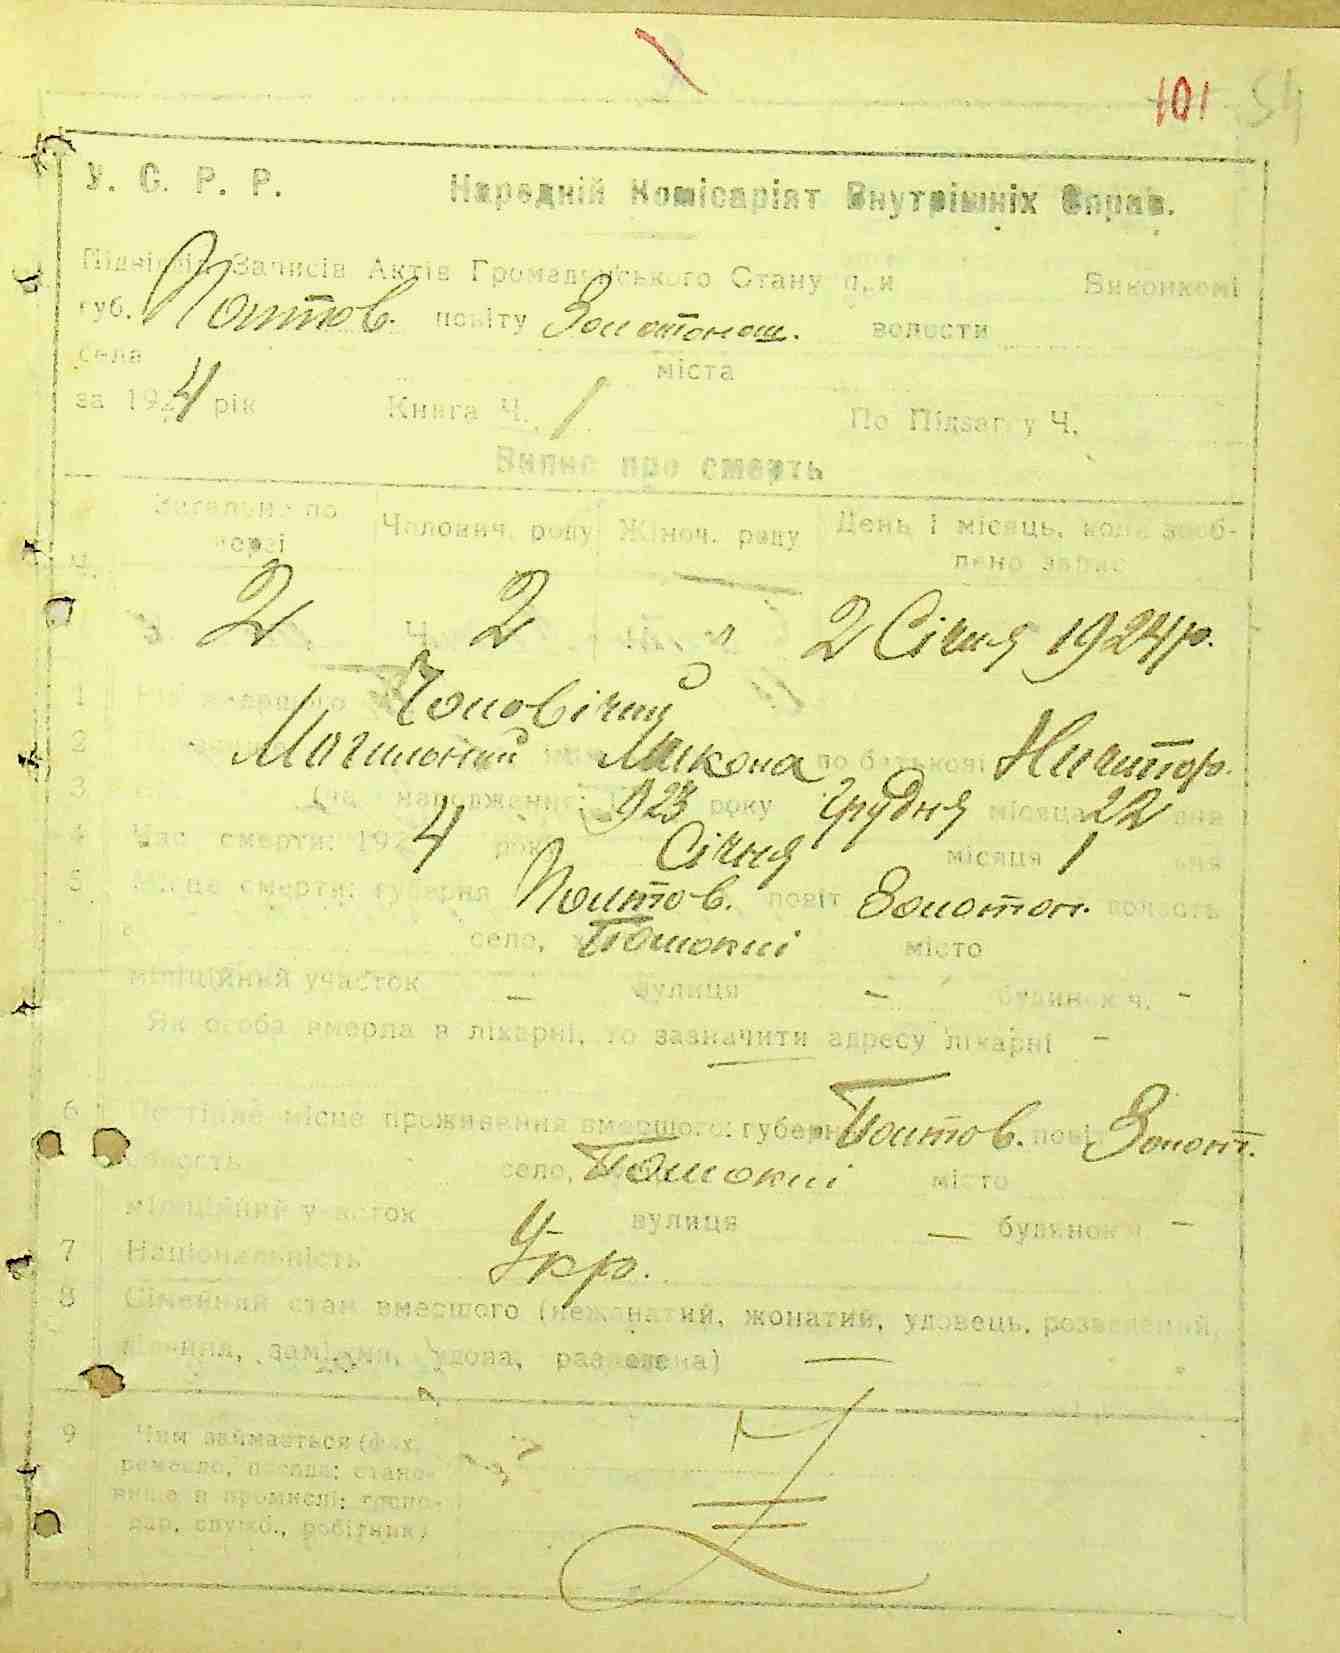 101 54
У. С. Р. Р. Народній Комісаріят Внутрішніх Справ.
Підвідділ Записів Актів Громадянського Стану при Виконкомі
губ. Полтов. повіту Золотонош. волости
села міста
за 1924 рік Книга Ч. 1 По Підзагсу Ч.
Випис про смерть
Загальне по Чолович. роду Жіноч. роду День і місяць, коли зроб-
черзі лено запис
Ч.
2 2 " 2 Січня 1924 р.
1 Чоловічий
2 Могильний Микола по батькові Ничипор.
3 народження: 1923 року Грудня місяця 22 дня
4 Час смерти: 1924 року Січня місяця 1 дня
5 Місце смерти: губерня Полтов. повіт Золотон. волость
село, місто
міліційний участок – вулиця – будинок ч. –
Як особа вмерла в лікарні, то зазначити адресу лікарні –
6 Постійне місце проживання вмершого: губерня Полтов. повіт Золот.
волость село, місто
міліційний участок вулиця – будинок ч. –
7 Національність Укр.
8 Сімейний стан вмершого (нежонатий, жонатий, удовець, розведений,
дівчина, замужня, удова, разведена) —
9 Чим займається (фах,
ремесло, посада: стано-
вище в промислі: госпо-
дар, служб., робітник)